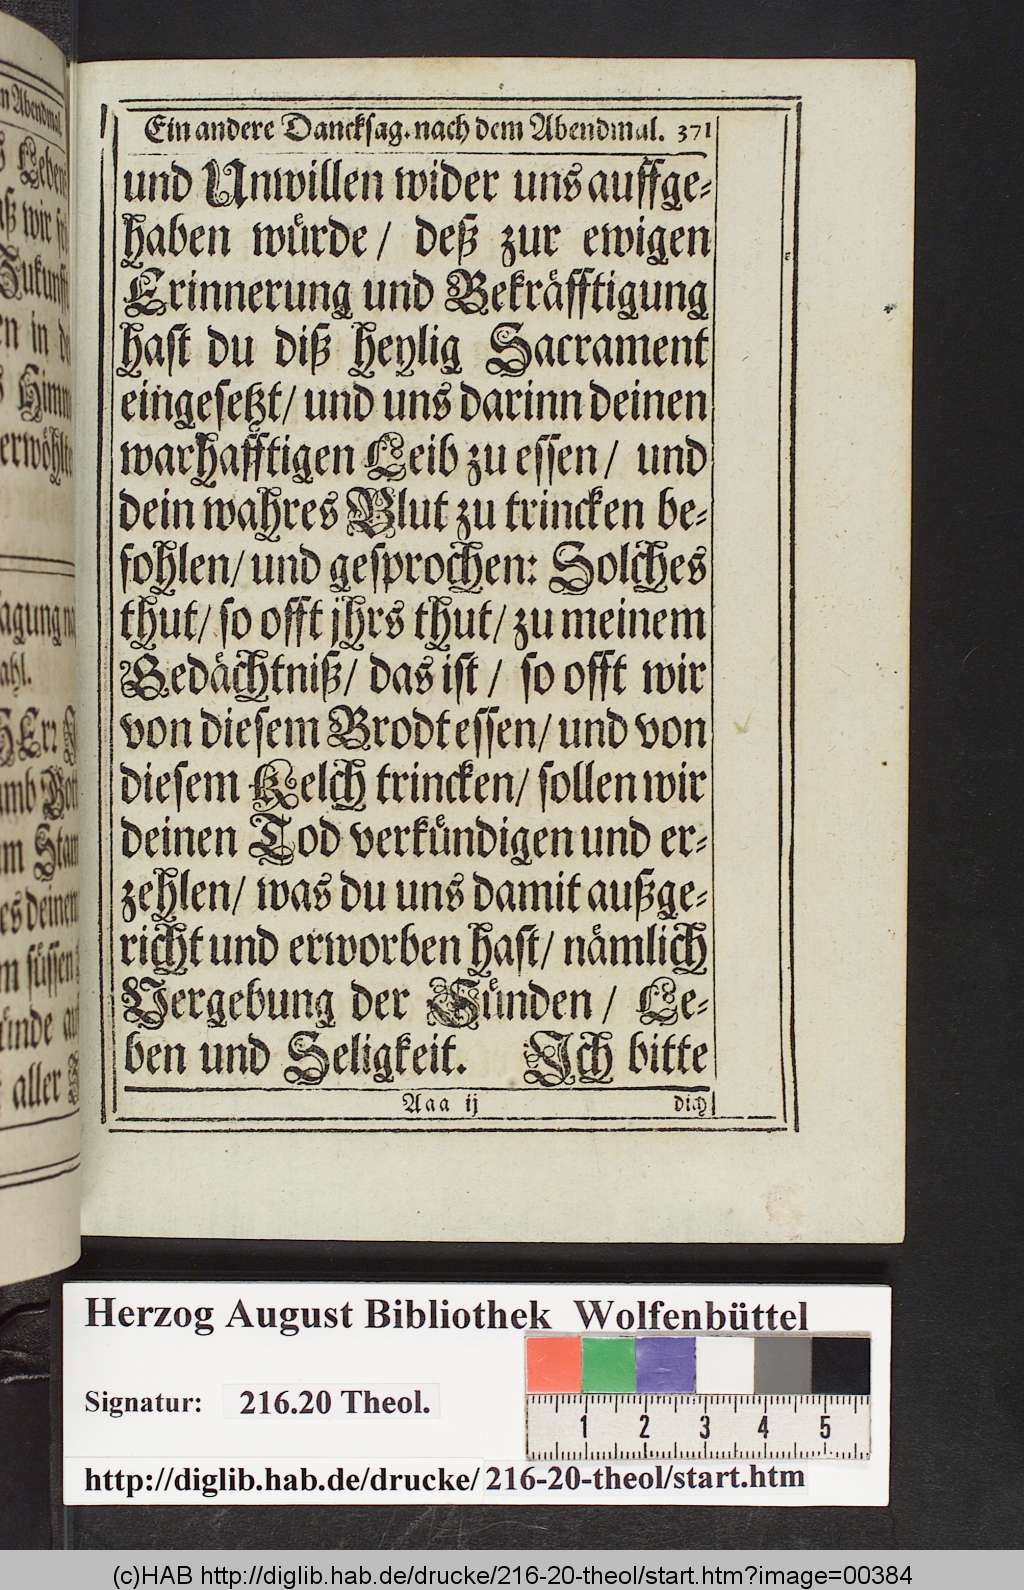 Ein andere Dancksag. nach dem Abendmal. 371
und Unwillen wider uns auffge-
haben würde/ deß zur ewigen
Erinnerung und Bekräfftigung
hast du diß heylig Sacrament
eingesetzt/ und uns darinn deinen
warhafftigen Leib zu essen/ und
dein wahres Blut zu trincken be-
fohlen/ und gesprochen: Solches
thut/ so offt jhrs thut/ zu meinem
Gedächtniß/ das ist/ so offt wir
von diesem Brodt essen/ und von
diesem Kelch trincken/ sollen wir
deinen Tod verkündigen und er-
zehlen/ was du uns damit außge-
richt und erworben hast/ nämlich
Vergebung der Sünden/ Le-
ben und Seligkeit. Ich bitte
Aaa ij dich
Herzog August Bibliothek Wolfenbüttel
Signatur: 216.20 Theol.
1 2 3 4 5
http://diglib.hab.de/drucke/216-20-theol/start.htm
(c)HAB http://diglib.hab.de/drucke/216-20-theol/start.htm?image=00384